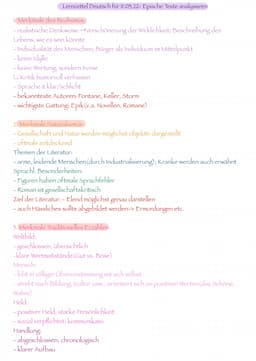 Lernzettel Deutsch für 11.05.22: Epische Texte analysieren
1. Merkmale des Realismus:
- realistische Denkweise → Verschönerung der Wirklichkeit; Beschreibung des
Lebens, wie es sein könnte
- Individualität des Menschen; Bürger als Individuum im Mittelpunkt
- keine Idylle
- keine Wertung, sondern
↳ Kritik: humorvoll verfassen
- Sprache: klar/schlicht
- bekannteste Autoren: Fontane, Keller, Storm
- wichtigste Gattung: Epik (v.a. Novellen, Romane)
2. Merkmale Naturalismus:
- Gesellschaft und Natur werden möglichst objektiv dargestellt
- oftmals anti
Themen der Literatur:
- arme, leidende Menschen (durch Industrialisierung); Kranke werden auch erwähnt
Sprachl. Besonderheiten:
- Figuren haben oftmals Sprachfehler
- Roman ist gesellschaftskritisch
Ziel der Literatur: - Elend möglichst genau darstellen
- auch Hässliches sollte abgebildet werden → Ermordungen etc.
3. Merkmale Traditionelles Erzählen
Weltbild:
- geschlossen, übersichtlich
- klare Wertmaßstände (Gut vs. Böse)
Mensch:
- lebt in völliger Übereinstimmung mit sich selbst
- strebt nach Bildung, Kultur usw., orientiert sich an positiven Werten (das Schöne,
Wahre)
Held:
- positiver Held; starke Persönlichkeit
- sozial verpflichtet; kommunikativ
Handlung:
- abgeschlossen, chronologisch
- klarer Aufbau